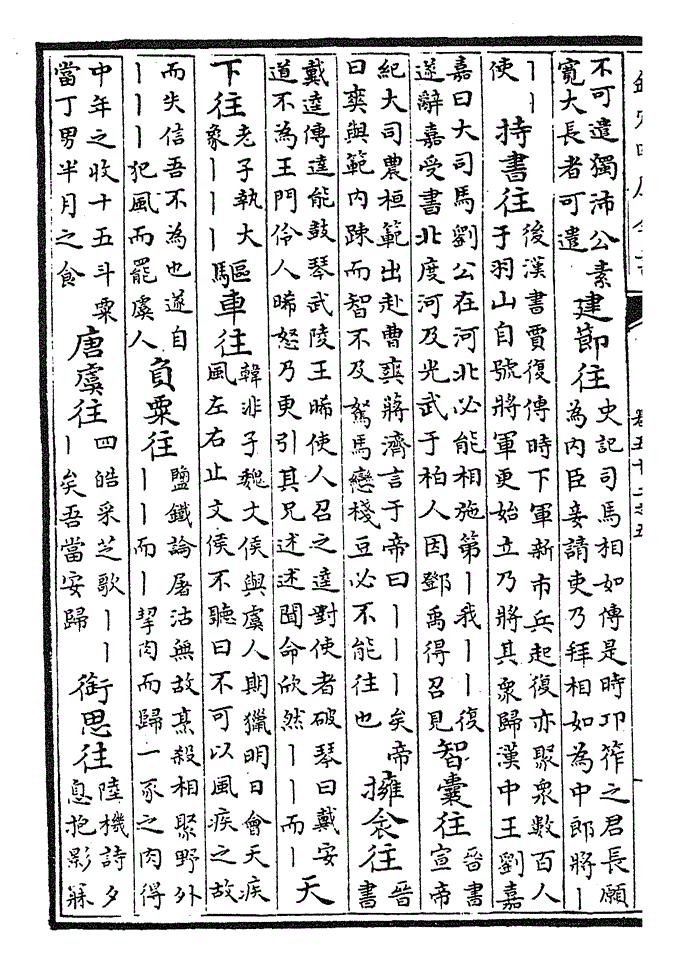 不可遣獨沛公素
寛大長者可遣
建節往
史記司馬相如傳是時卭筰之君長願
為内臣妾請吏乃拜相如為中郎將丨
丨丨
使
持書往
後漢書賈復傳時下軍新市兵起復亦聚衆數百人
于羽山自號將軍更始立乃將其衆歸漢中王劉嘉
嘉曰大司馬劉公在河北必能相施第丨我丨丨復
遂辭嘉受書北度河及光武于柏人因鄧禹得召見
智囊往
晉書
宣帝
紀大司農桓範出赴曹爽蔣濟言于帝曰丨丨丨矣帝
曰爽與範内踈而智不及駑馬戀棧豆必不能往也
擁衾往
晉
書
戴逵傳逵能鼓琴武陵王晞使人召之逵對使者破琴曰戴安
道不為王門伶人晞怒乃更引其兄述述聞命欣然丨丨而丨
天
下往
老子執大
象丨丨丨
驅車往
韓非子魏文侯與虞人期獵明日會天疾
風左右止文侯不聽曰不可以風疾之故
而失信吾不為也遂自
丨丨丨犯風而罷虞人
負粟往
鹽鐵論屠沽無故烹殺相聚野外
丨丨而丨挈肉而歸一豕之肉得
中年之收十五斗粟
當丁男半月之食
唐虞往
四皓采芝歌丨丨
丨矣吾當安歸
銜思往
陸機詩夕
息抱影寐